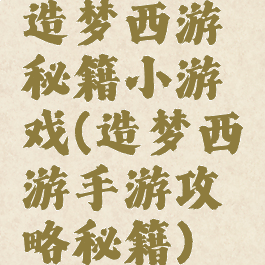 造梦西游
秘籍小游
戏(造梦西
游手游攻
略秘籍)